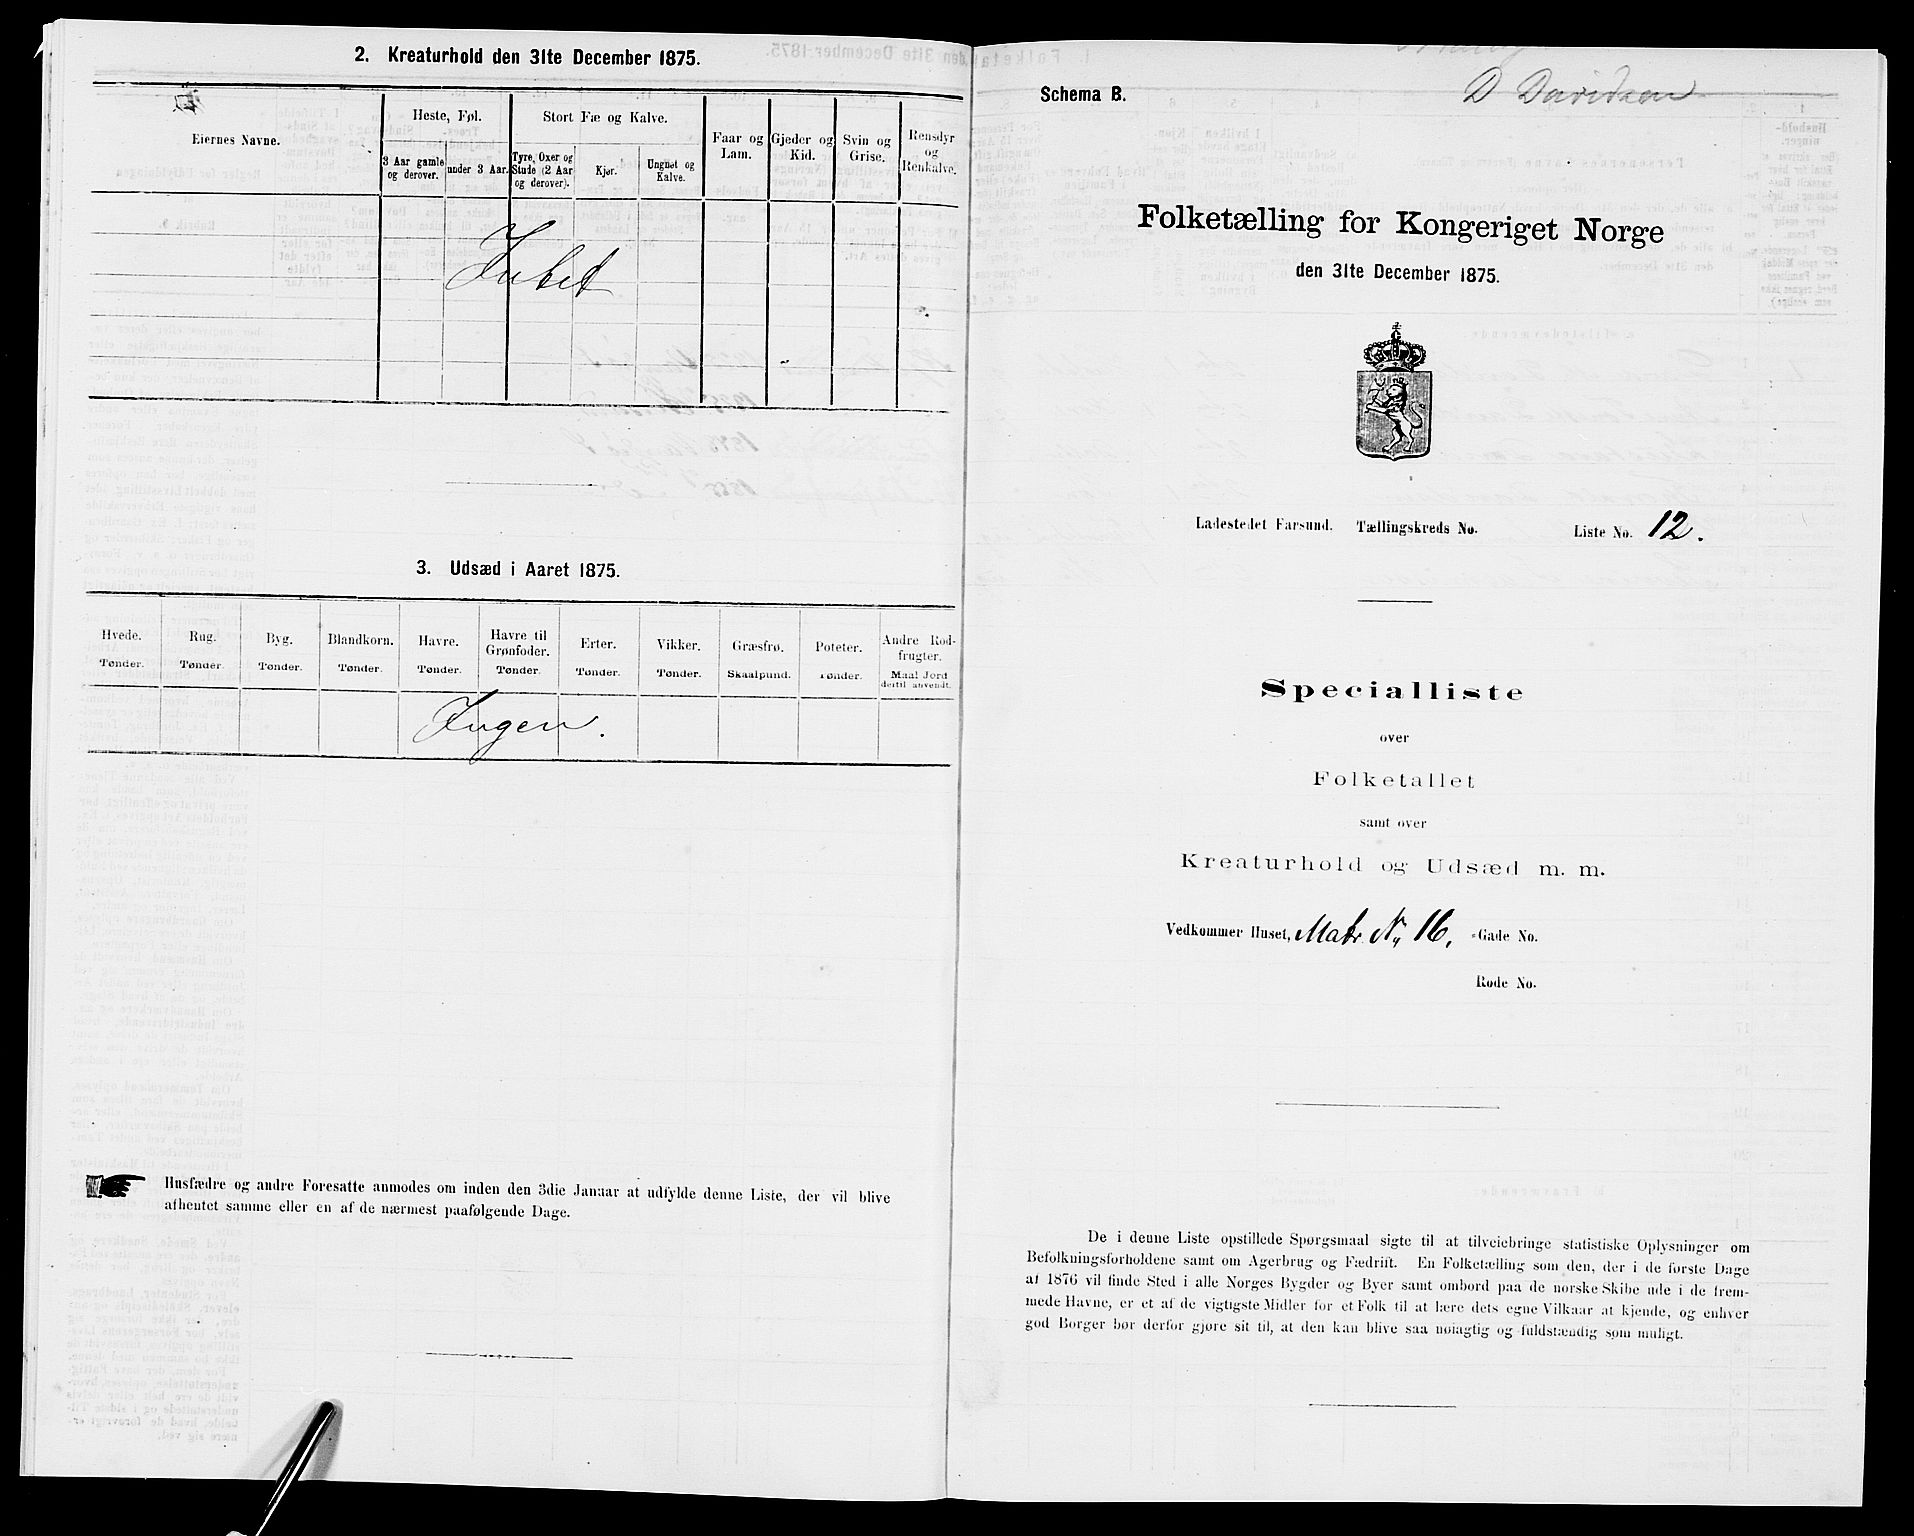 2. Kreaturhold den 31te December 1875.
Eiernes Navne.
Heste, Føl.
Stort Fæ og Kalve.
Faar og Lam.
Gjeder og Kid.
Svin og Grise.
Rensdyr og Renkalve.
3 Aar gamle og derover.
under 3 Aar.
Tyre, Oxer og Stude (2 Aar og derover).
Kjør.
Ungnøt og Kalve.
Intet
3. Udsæd i Aaret 1875.
Hvede.
Rug.
Byg.
Blandkorn.
Havre.
Havre til Grønfoder.
Erter.
Vikker.
Græsfrø.
Poteter.
Andre Rodfrugter.
Tønder.
Tønder.
Tønder.
Tønder.
Tønder.
Tønder.
Tønder.
Tønder.
Skaalpund.
Tønder.
Maal Jord dertil anvendt.
Ingen.
Husfædre og andre Foresatte anmodes om inden den 3die Januar at udfylde denne Liste, der vil blive
afhentet samme eller en af de nærmest paafølgende Dage.
Schema B.
D Davidsen
Folketælling for Kongeriget Norge
den 31te December 1875.
Ladestedet Farsund. Tællingskreds No. Liste No. 12.
Specialliste
over
Folketallet
samt over
Kreaturhold og Udsæd m. m.
Vedkommer Huset, Matr. No 16, -Gade No.
Rode No.
De i denne Liste opstillede Spørgsmaal sigte til at tilveiebringe statistiske Oplysninger om
Befolkningsforholdene samt om Agerbrug og Fædrift. En Folketælling som den, der i de første Dage
af 1876 vil finde Sted i alle Norges Bygder og Byer samt ombord paa de norske Skibe ude i de frem-
mede Havne, er et af de vigtigste Midler for et Folk til at lære dets egne Vilkaar at kjende, og enhver
god Borger bør derfor gjøre sit til, at den kan blive saa nøiagtig og fuldstændig som muligt.